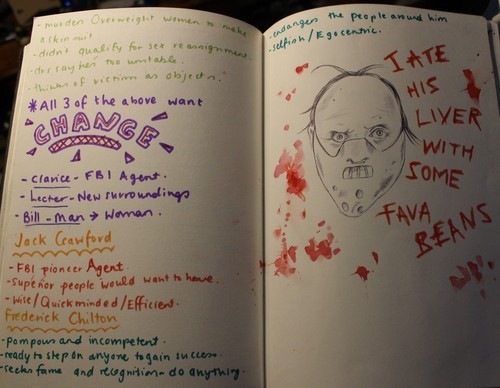 - murder Overweight women to make
a skin suit
- didn't qualify for sex reassignment.
- drs say he's too unstable.
- thinks of victim as objects."
*All 3 of the above want
CHANGE
- Clarice - FBI Agent.
- Lecter - New surroundings
- Bill - Man → Woman.
Jack Crawford
- FBI pioneer Agent.
- superior people would want to have.
- Wise/Quickminded/Efficient.
Frederick Chilton
- pompous and incompetent.
- ready to step on anyone to gain success.
- seeks fame and recognition - do anything.
- endangers the people around him
- selfish/Egocentric.
I ATE
HIS
LIVER
WITH
SOME
FAVA
BEANS